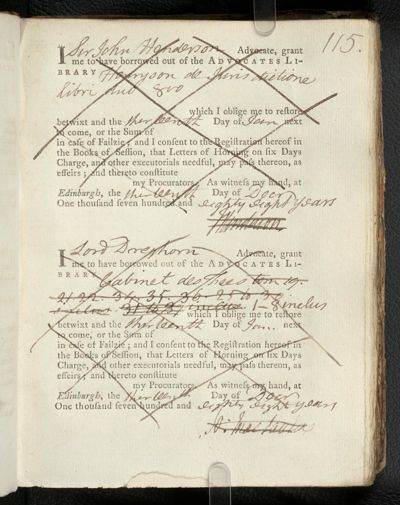 115.
I Sir John Henderson Advocate, grant
me to have borrowed out of the ADVOCATES LI-
BRARY Harryson de Jurisdictione
libri duo 8vo
which I oblige me to restore
betwixt and the thirteenth Day of Jan next
to come, or the Sum of
in case of Failzie; and I consent to the Registration hereof in
the Books of Session, that Letters of Horning on six Days
Charge, and other executorials needful, may pass thereon, as
effeirs; and thereto constitute
my Procurators. As witness my hand, at
Edinburgh, the thirteenth Day of Decr
One thousand seven hundred and eighty eight years
I Lord Dreghorn Advocate, grant
me to have borrowed out of the ADVOCATES LI-
BRARY Cabinet des Fees tom 19.
21 22. 34. 35. 36.
1-8 inclus
which I oblige me to restore
betwixt and the thirteenth Day of Jan.. next
to come, or the Sum of
in case of Failzie; and I consent to the Registration hereof in
the Books of Session, that Letters of Horning on six Days
Charge, and other executorials needful, may pass thereon, as
effeirs; and thereto constitute
my Procurators. As witness my hand, at
Edinburgh, the thirteenth Day of Decr
One thousand seven hundred and eighty eight years